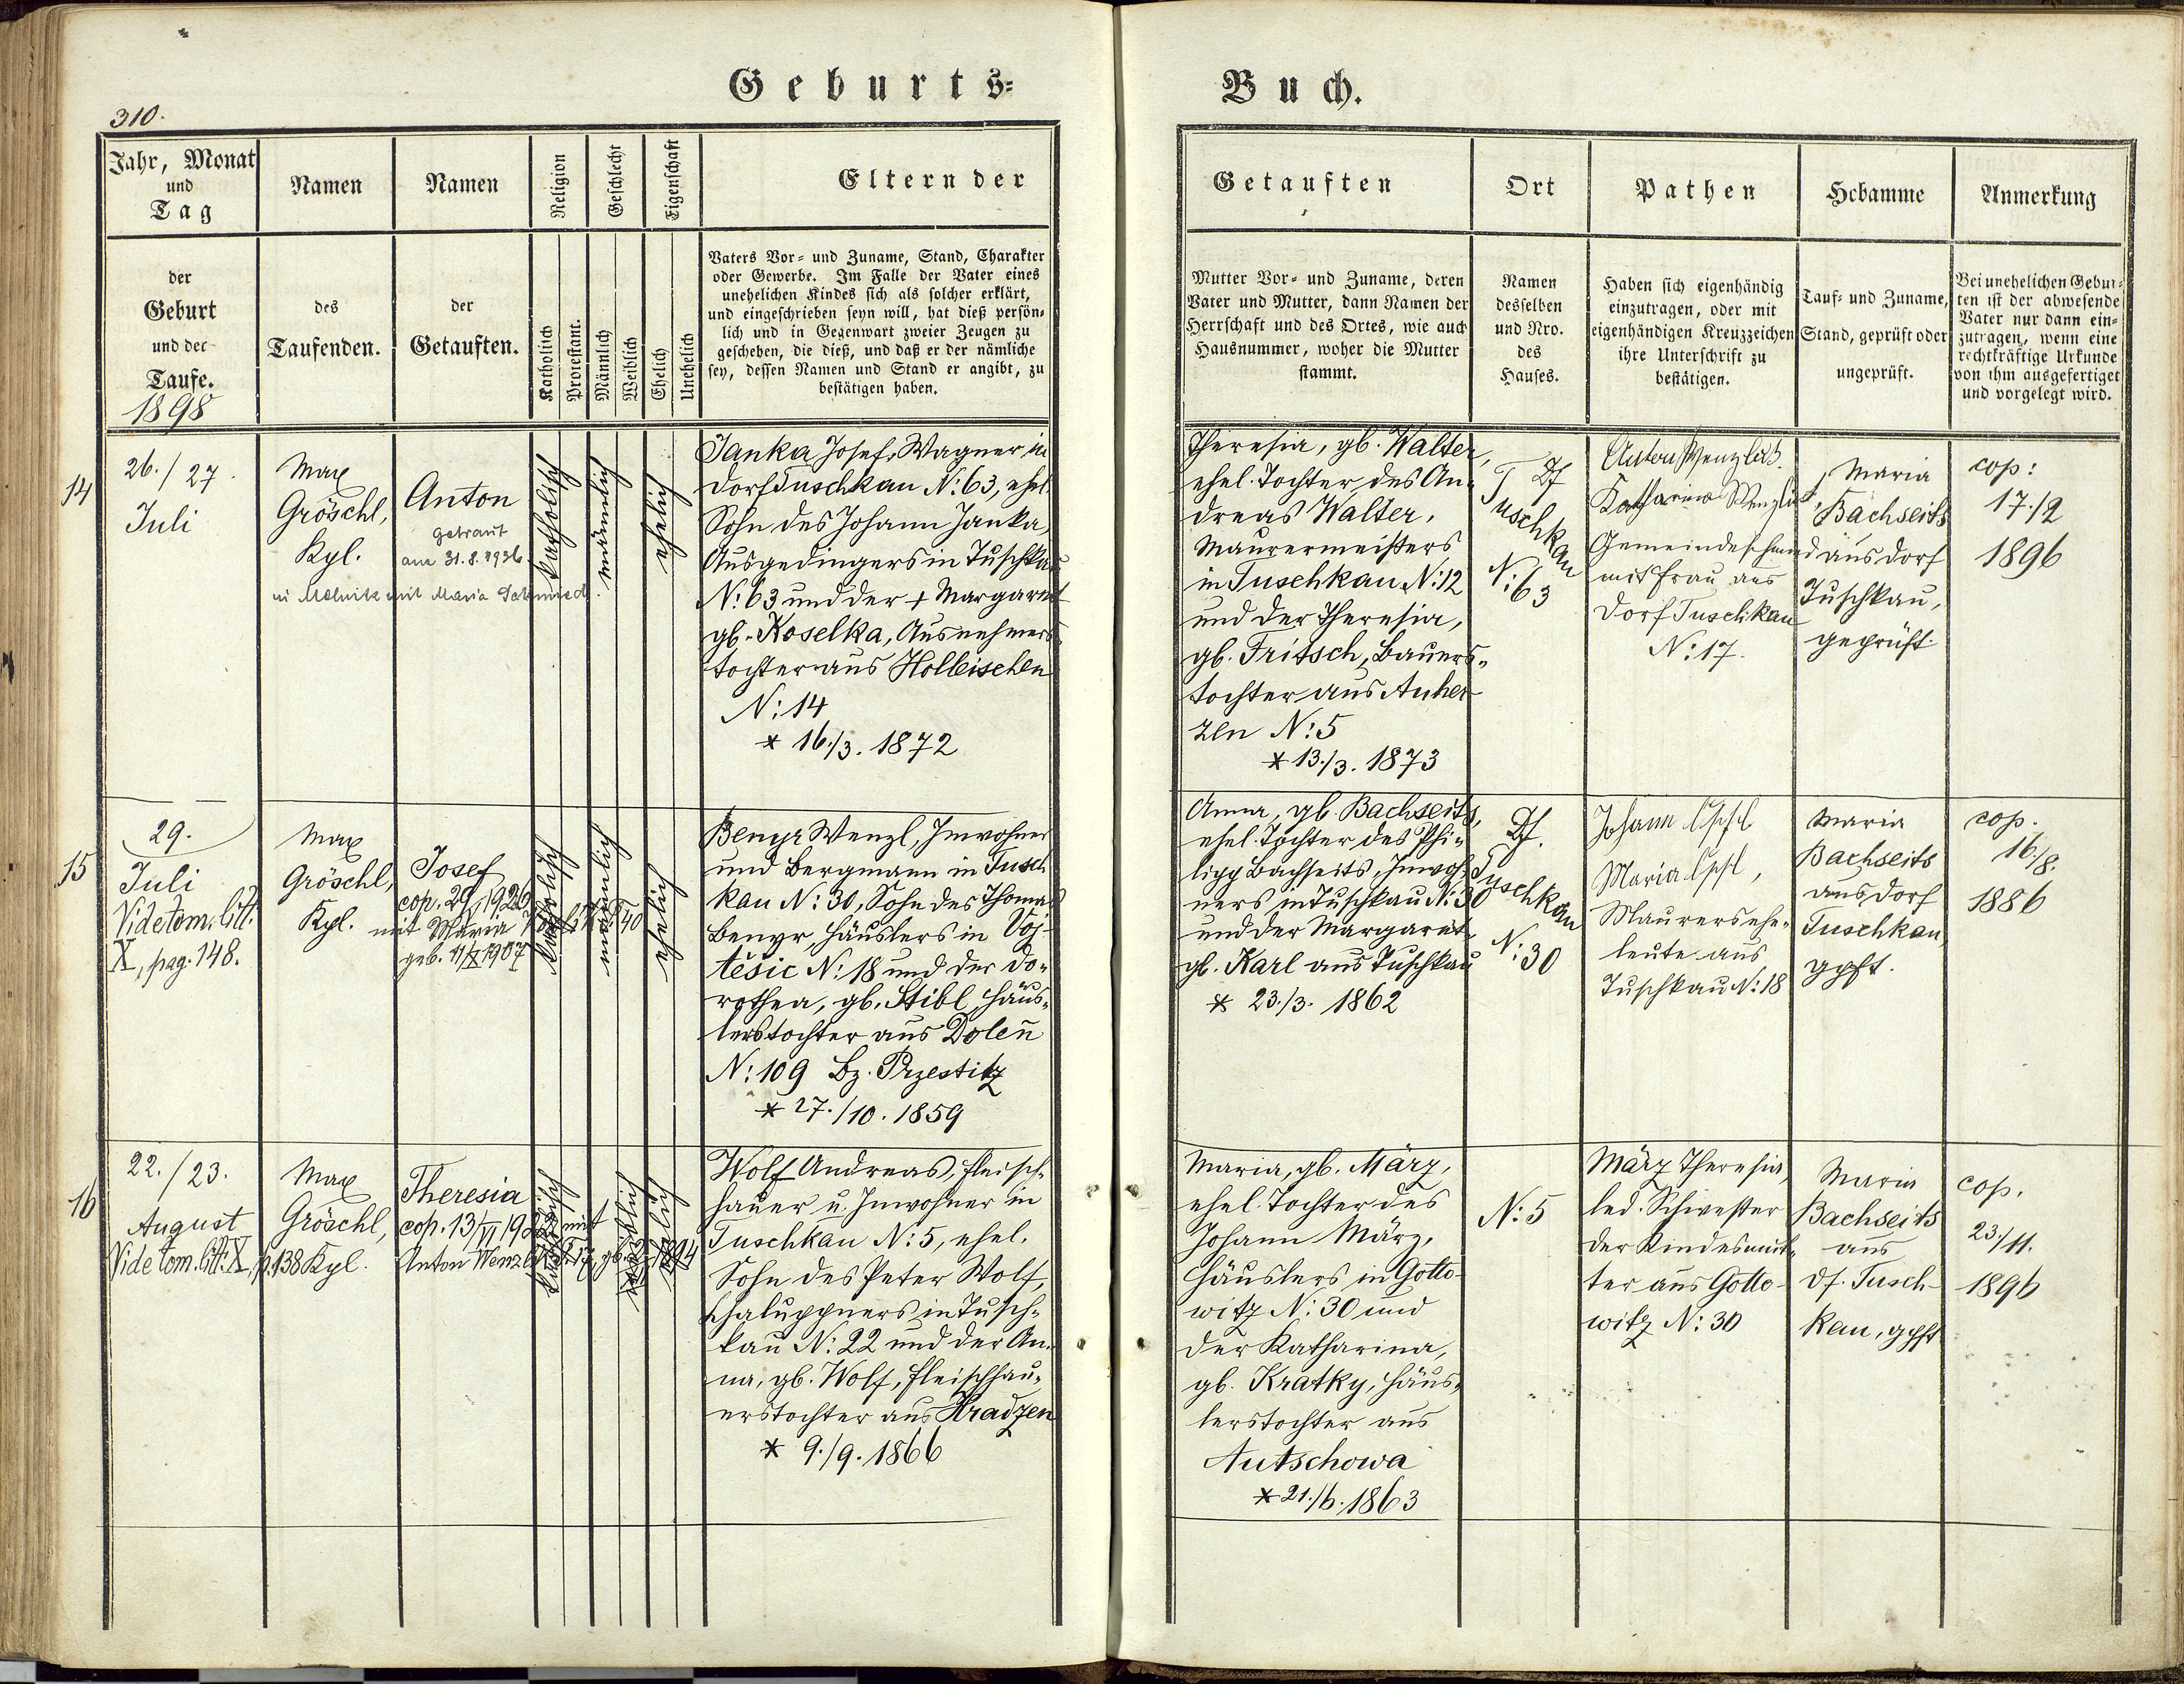 Geburts=
Buch.
310.
Jahr, Monat
und
Tag
Namen
Namen
Religion
Geschlecht
Eigenschaft
Eltern der
Getauften
Ort
Pathen
Hebamme
Anmerkung
der
Geburt
und der
Taufe.
1898
des
Taufenden.
der
Getauften.
Katholisch
Protestant.
Männlich
Weiblich
Ehelich
Unehelich
Vaters Vor= und Zuname, Stand, Charakter
oder Gewerbe. Im Falle der Vater eines
unehelichen Kindes sich als solcher erklärt,
und eingeschrieben seyn will, hat dieß persön=
lich und in Gegenwart zweier Zeugen zu
geschehen, die dieß, und daß er der nämliche
sey, dessen Namen und Stand er angibt, zu
bestätigen haben.
Mutter Vor= und Zuname, deren
Vater und Mutter, dann Namen der
Herrschaft und des Ortes, wie auch
Hausnummer, woher die Mutter
stammt.
Namen
desselben
und Nro.
des
Hauses.
Haben sich eigenhändig
einzutragen, oder mit
eigenhändigen Kreuzzeichen
ihre Unterschrift zu
bestätigen.
Tauf= und Zuname,
Stand, geprüft oder
ungeprüft.
Bei unehelichen Gebur=
ten ist der abwesende
Vater nur dann ein=
zutragen, wenn eine
rechtkräftige Urkunde
von ihm ausgefertiget
und vorgelegt wird.
14
26./27.
Juli
Max
Gröschl,
Kpl.
Anton
getraut
am 31.8.1936
in Melnik mit Maria Schmied.
katholisch
männlich
ehelich
Janka Josef, Wagner in
Dorf Tuschkau N: 63, ehel.
Sohn des Johann Janka,
Ausgedingers in Tuschkau
N: 63 und der + Margaret
gb. Koselka, Ausnehmers
tochter aus Holleischen
N: 14
* 16./3. 1872
Theresia, gb. Walter,
ehel. Tochter des An=
dreas Walter,
Maurermeisters
in Tuschkau N: 12
und der Theresia,
gb. Fritsch, Bauers=
tochter aus Auher=
zen N: 5
* 13./3. 1873
Df
Tuschkau
N: 63
Anton Wenzlik.
Katharina Wenzlik,
Gemeindeschmied
mit Frau aus
Dorf Tuschkau
N: 17.
Maria
Bachseits
aus Dorf
Tuschkau,
geprüft.
cop:
17./2
1896
15
29.
Juli
Vide tom. litt.
X, pag. 148.
Max
Gröschl,
Kpl.
Josef
cop. 1926
mit Maria
geb. 11/X 1907
katholisch
männlich
ehelich
Benyr Wenzl, Inwohner
und Bergmann in Tusch
kau N: 30, Sohn des Thomas
Benyr, Häuslers in Voj=
těšic N: 18 und der Do=
rothea, gb. Stibl, Häus=
lerstochter aus Dolen
N: 109 Bz. Przestitz
* 27./10. 1859
Anna, gb. Bachseits,
ehel. Tochter des Phi=
lipp Bachseits, Inwoh=
ners in Tuschkau N: 30
und der Margaret
gb. Karl aus Tuschkau
* 23./3. 1862
Df.
Tuschkau
N: 30
Johann
Maria
Maurersehe=
leute aus
Tuschkau N: 18
Maria
Bachseits
aus Dorf
Tuschkau
gpft.
cop.
16./8.
1886
16
22./23.
August
Vide tom. litt. X, p. 138
Max
Gröschl,
Kpl.
Theresia
cop. 13/VI mit
Anton Wenzlik
katholisch
weiblich
ehelich
Wolf Andreas, Fleisch=
hauer u. Inwohner in
Tuschkau N: 5, ehel.
Sohn des Peter Wolf,
Chaluppners in Tusch=
kau N: 22 und der An=
na, gb. Wolf, Fleischhau=
erstochter aus Hradzen
* 9./9. 1866
Maria, gb. März,
ehel. Tochter des
Johann März,
Häuslers in Gotto=
witz N: 30 und
der Katharina,
gb. Kratky, Häus=
lerstochter aus
Autschowa
* 21./6. 1863
N: 5
März Theresia,
led. Schwester
der Kindesmut=
ter aus Gotto=
witz N: 30
Maria
Bachseits
aus
Df. Tusch=
kau, gpft
cop.
23./11.
1896